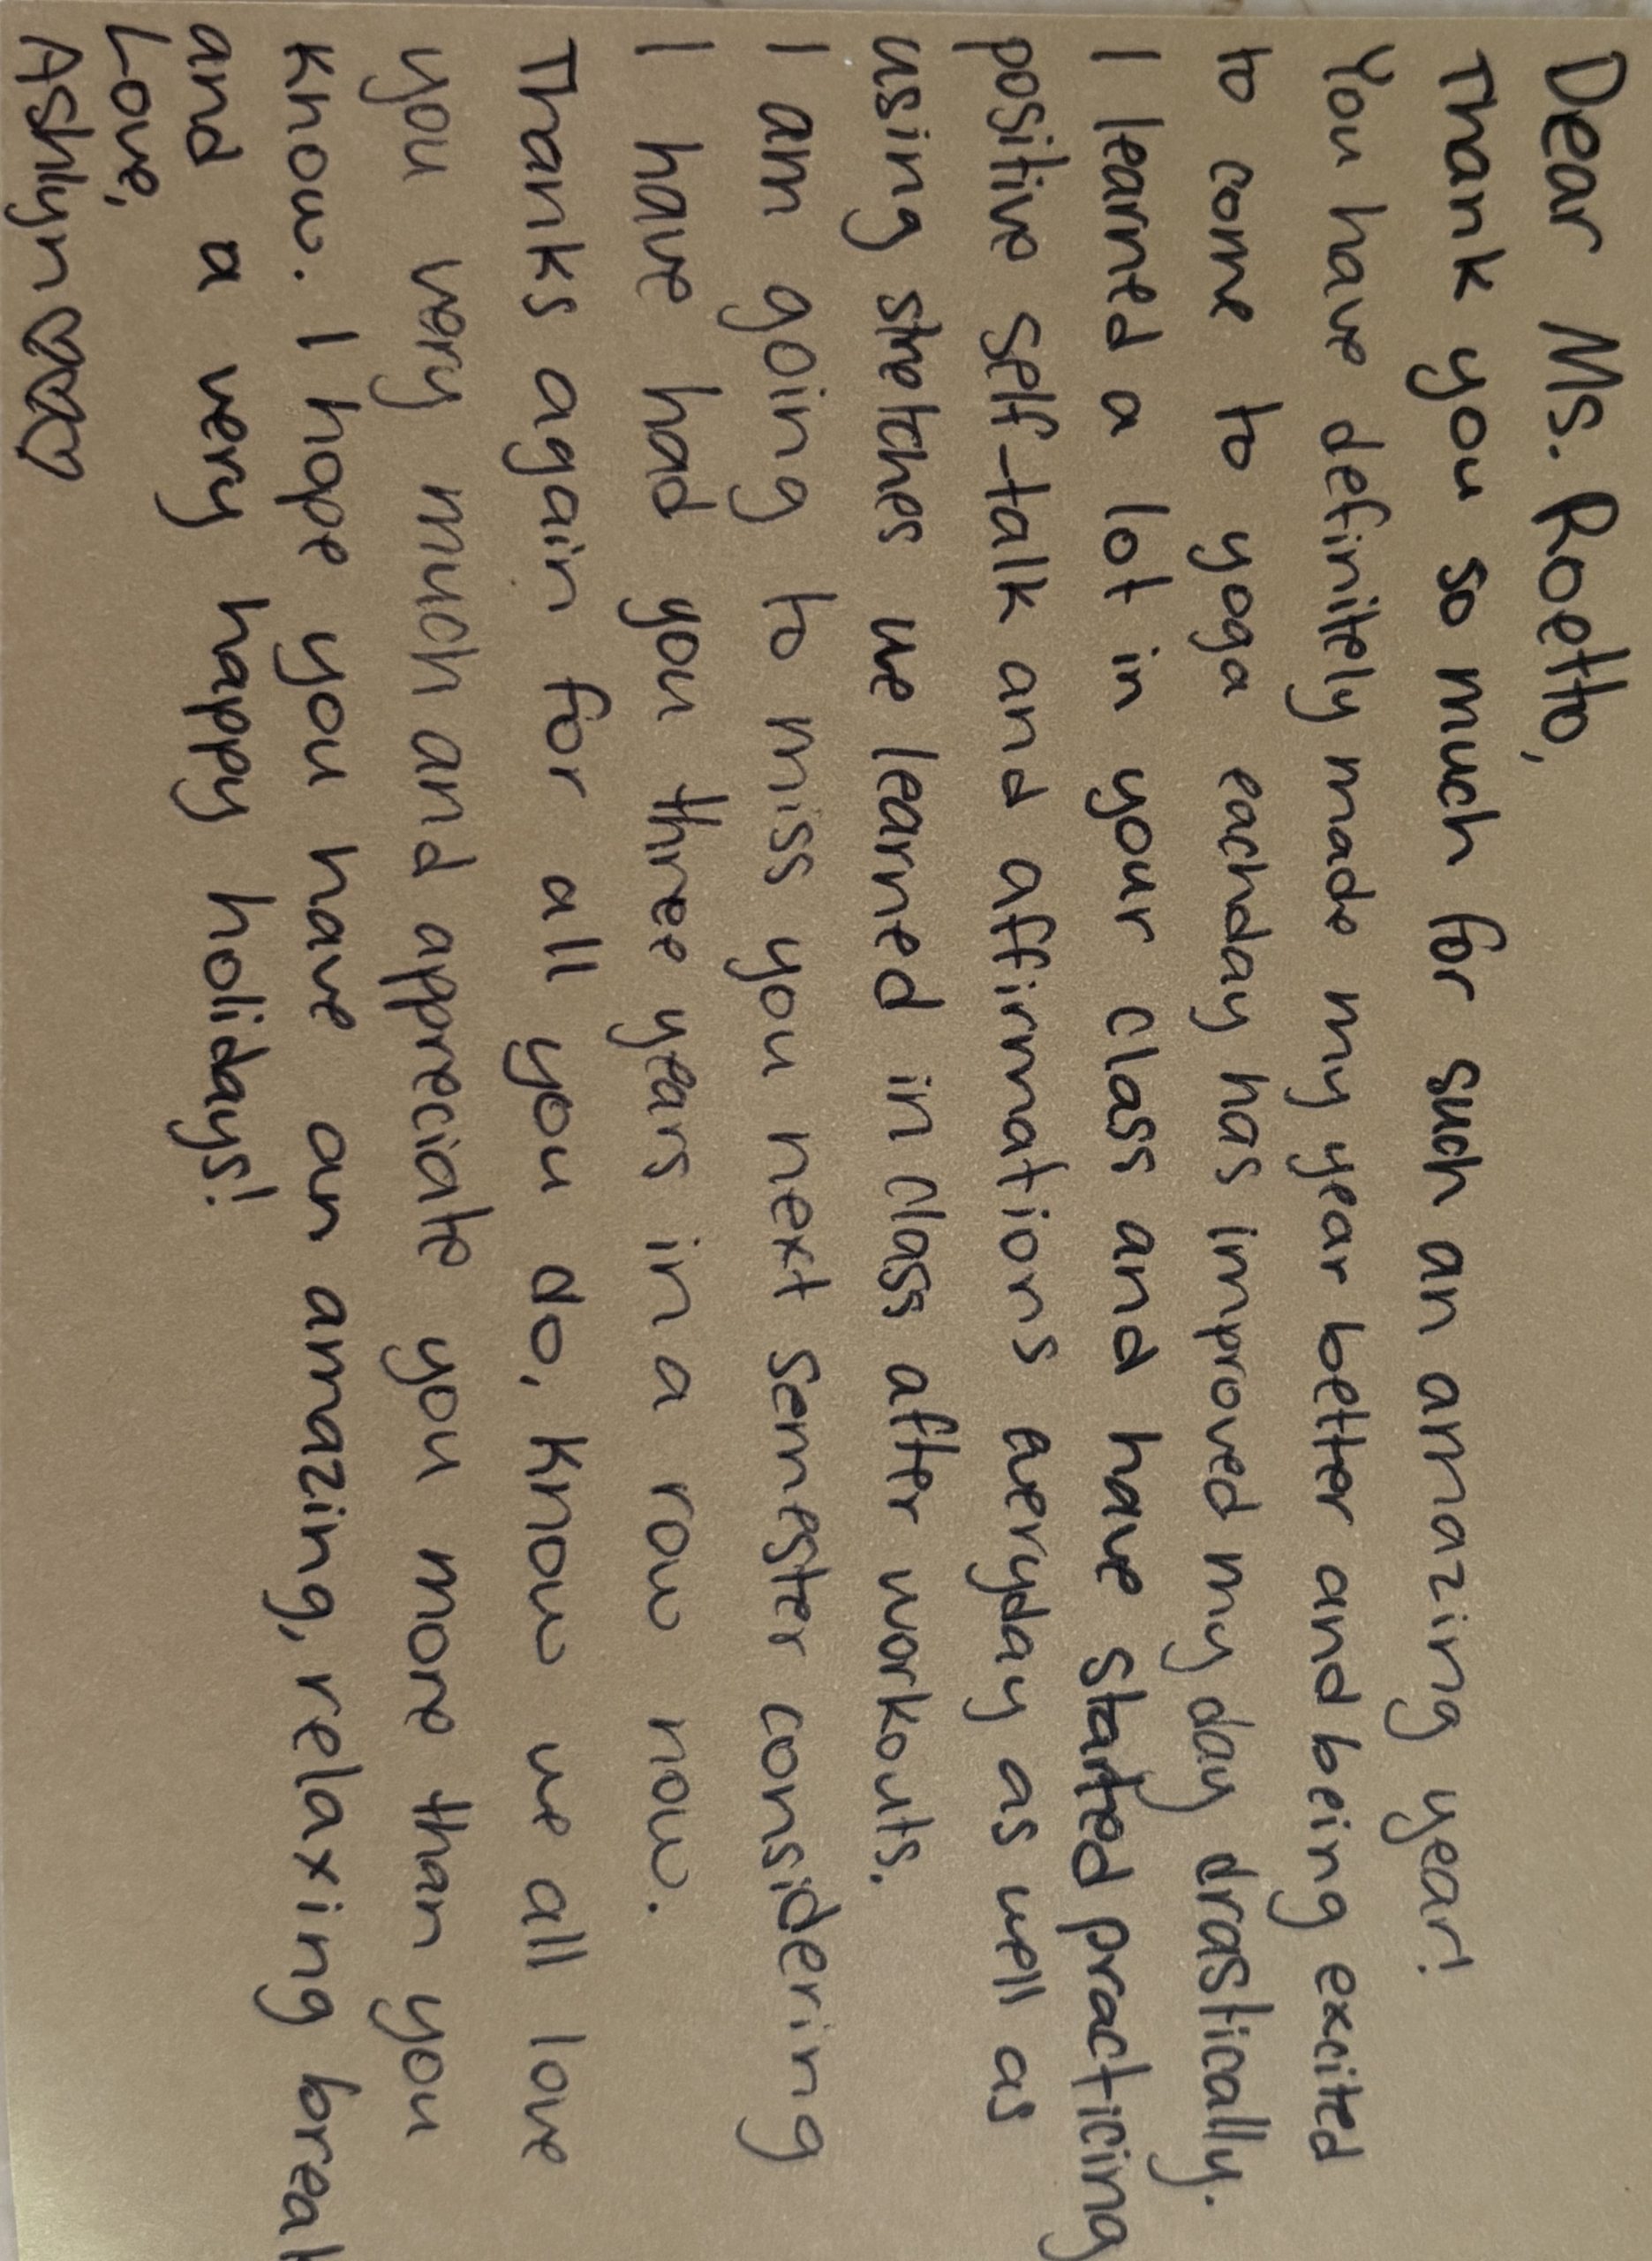 Dear Ms. Roetto,
Thank you so much for such an amazing year!
You have definitely made my year better and being excited
to come to yoga eachday has improved my day drastically.
I learned a lot in your class and have started practicing
positive self-talk and affirmations everyday as well as
using stretches we learned in class after workouts.
I am going to miss you next semester considering
I have had you three years in a row now.
Thanks again for all you do, know we all love
you very much and appreciate you more than you
know. I hope you have an amazing, relaxing break
and a very happy holidays!
Love,
Ashlyn